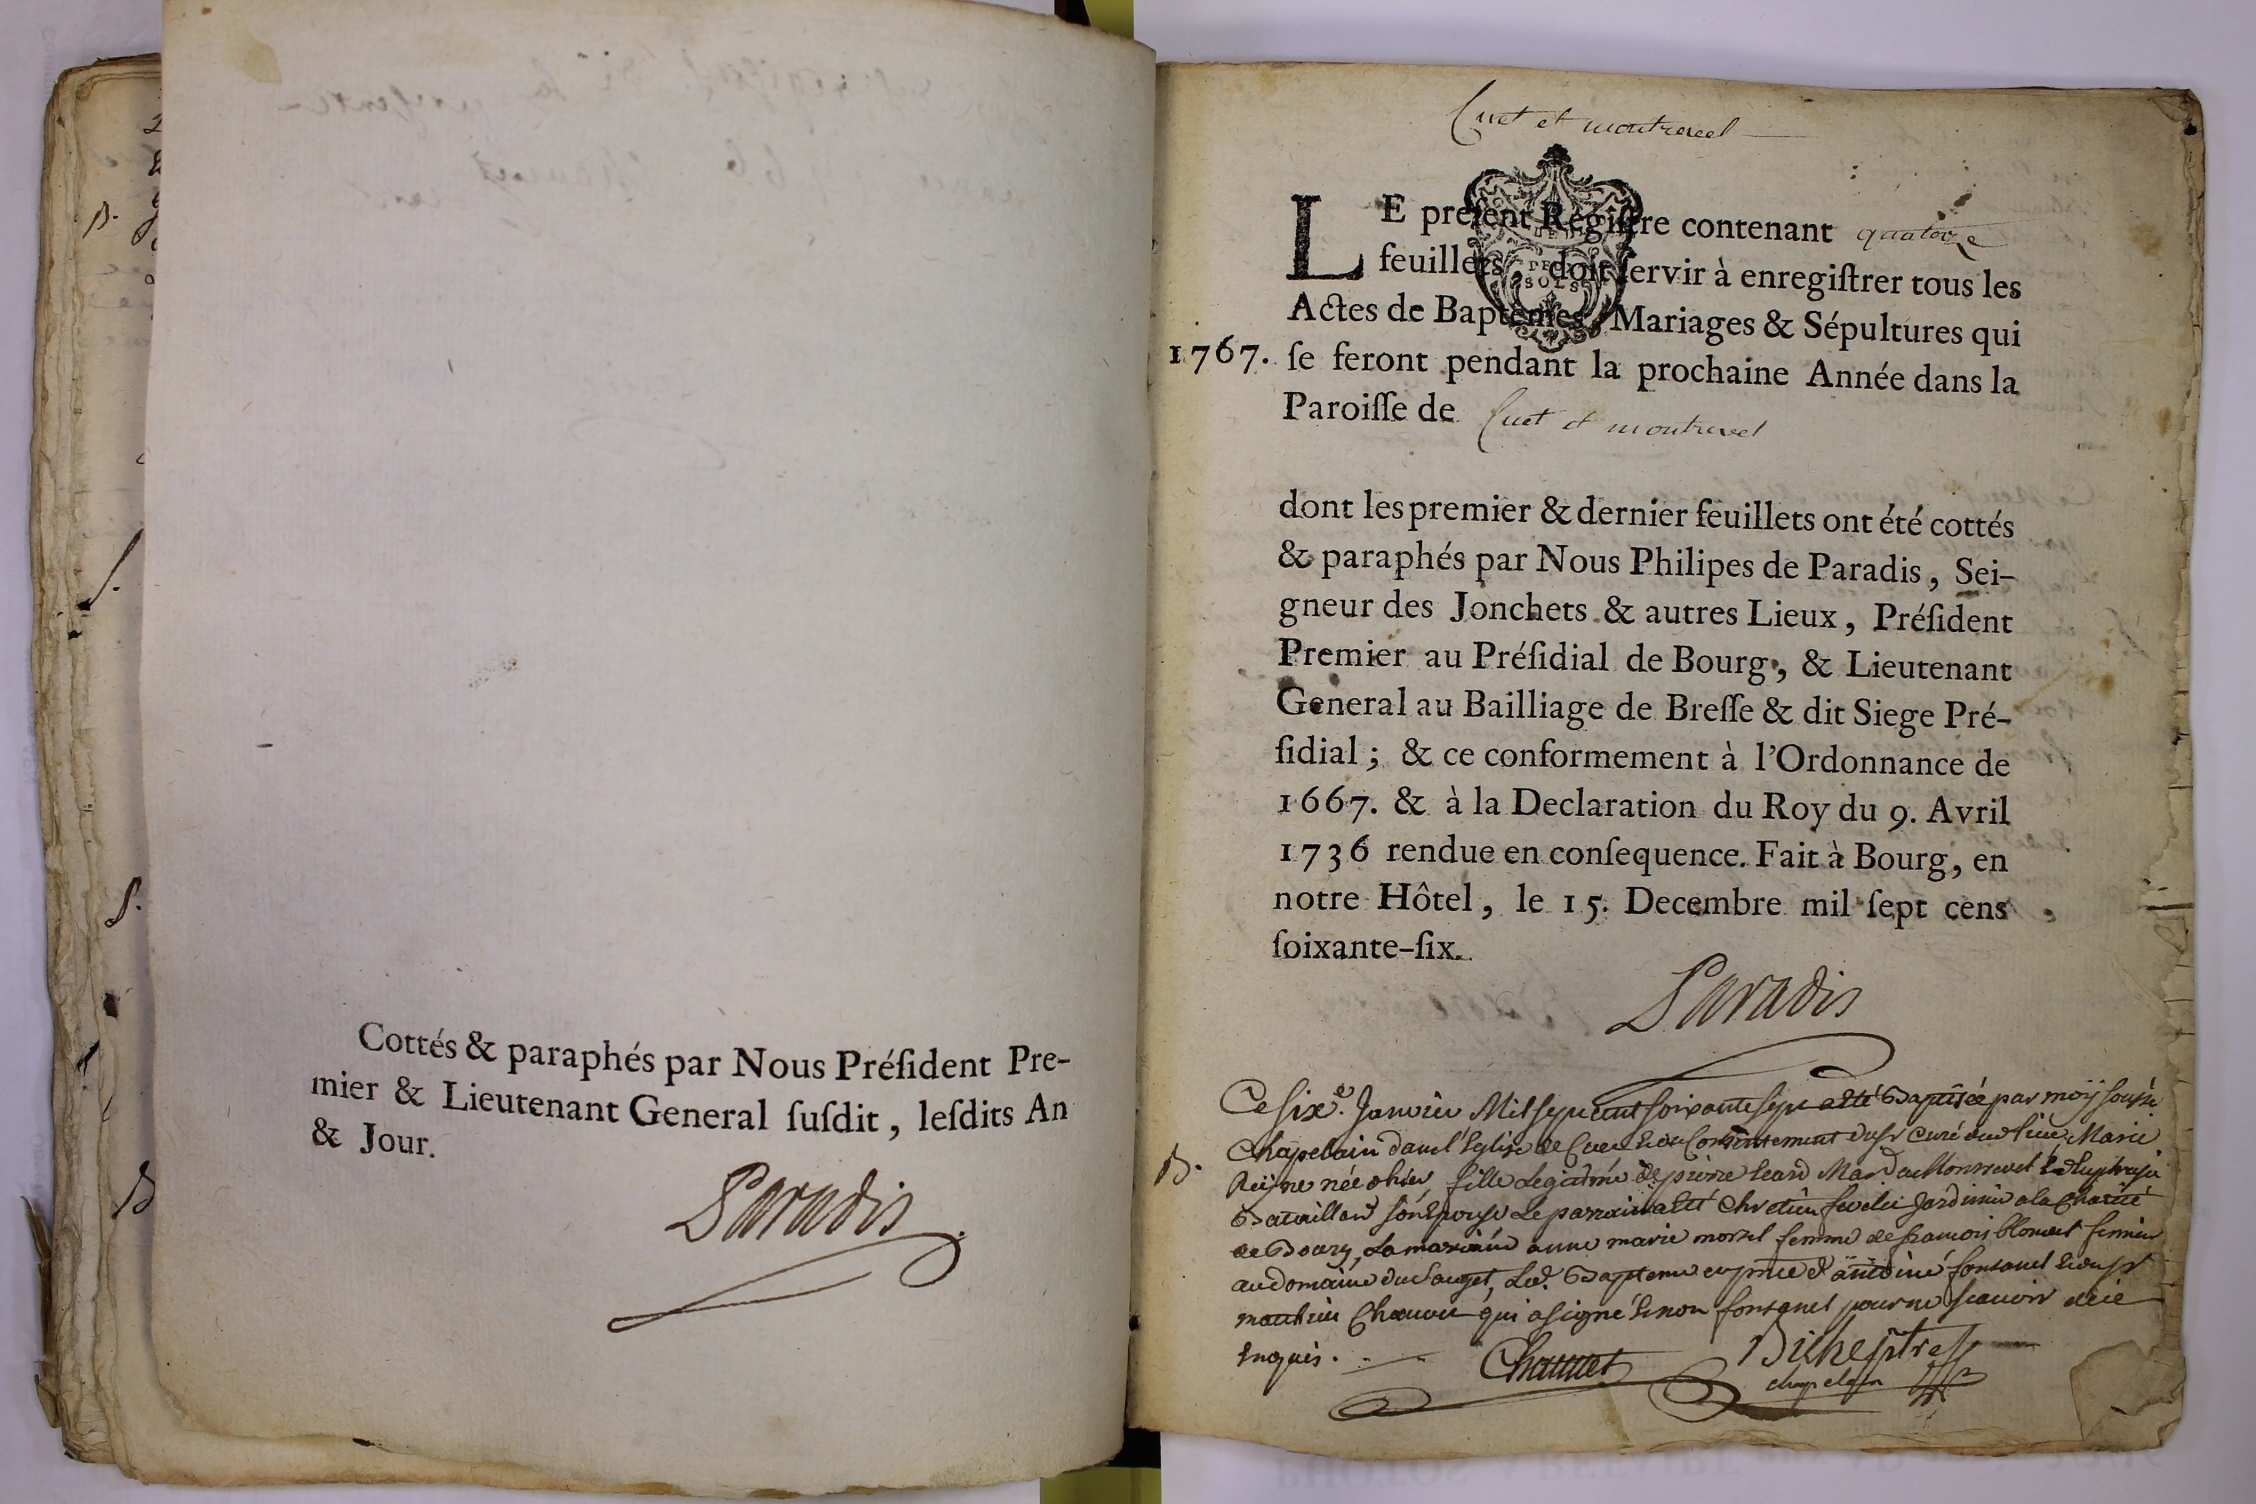 B.
S.
S.
B
Cottés & paraphés par Nous Préſident Pre-
mier & Lieutenant General ſuſdit, leſdits An
& Jour.
Paradis
Cuet et montrevel
LE preſent Régiſtre contenant quatorze
feuillets, doit ſervir à enregiſtrer tous les
Actes de Baptêmes, Mariages & Sépultures qui
1767. ſe feront pendant la prochaine Année dans la
Paroiſſe de Cuet et montrevel
dont les premier & dernier feuillets ont été cottés
& paraphés par Nous Philipes de Paradis, Sei-
gneur des Jonchets & autres Lieux, Préſident
Premier au Préſidial de Bourg, & Lieutenant
General au Bailliage de Breſſe & dit Siege Pré-
ſidial; & ce conformement à l'Ordonnance de
1667. & à la Declaration du Roy du 9. Avril
1736 rendue en conſequence. Fait à Bourg, en
notre Hôtel, le 15. Decembre mil ſept cens
ſoixante-ſix.
Paradis
Ce sixe. Janvier Mil sept cent soixante sept a été Baptisée par moÿ soussné
Chapelain dans l'Eglise de Cuet du Consentement du sr Curé dud lieu, Marie
B. Reÿne née hier fille Legitime de pierre
son Epouse Le parrain a été Chretien jardinier a la Charité
de Bourg, La marraine anne marie morel femme de francois fermier
au domaine du Sauget, Led. Bapteme en pnce d'antoine fontanel & du sr
Chauvet qui a signé & non fontanel pour ne scavoir de ce
Enquis.
Chauvet
Bicheptre
chapelain